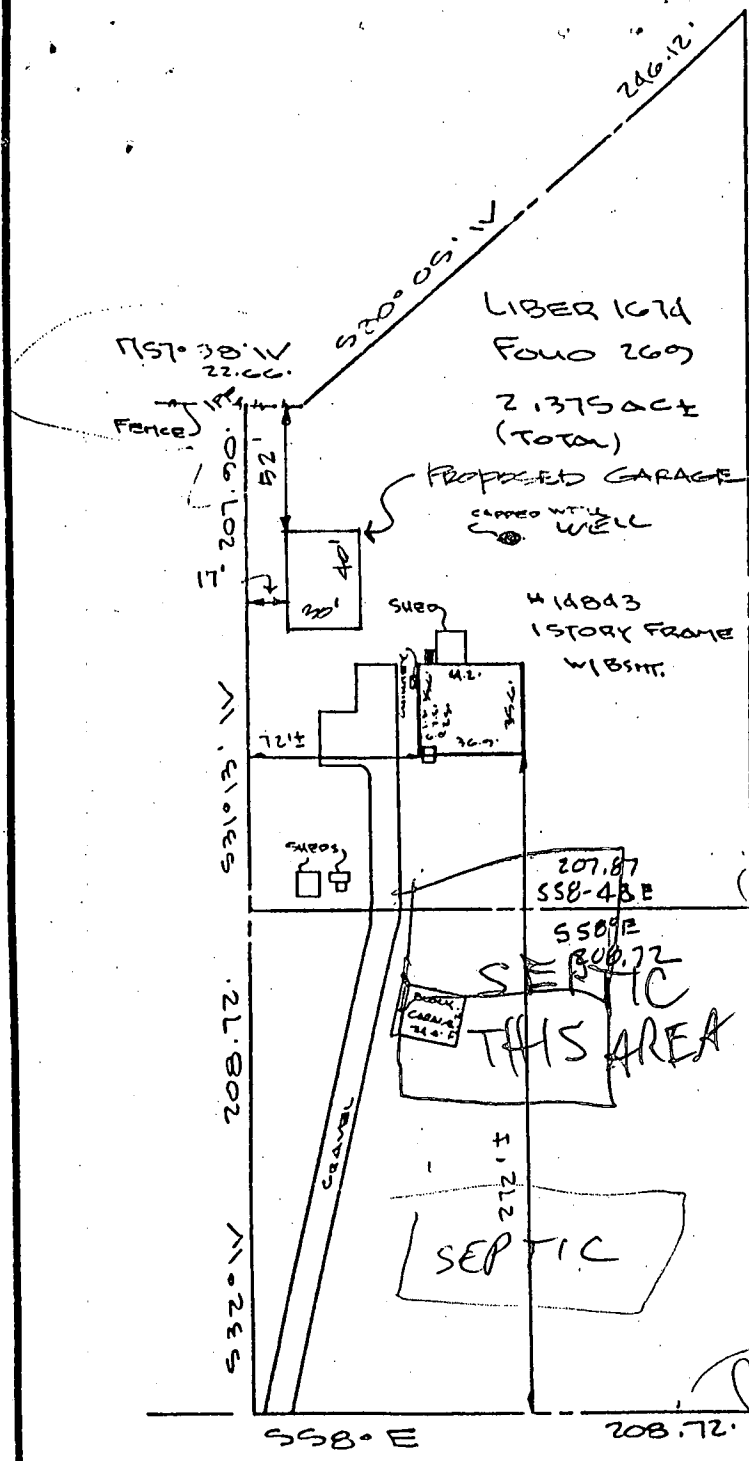 246.12'
S20°05'W
LIBER 1674
FOLIO 269
2.375 AC±
(TOTAL)
N57°38'W
22.66'
FENCE
52'
PROPOSED GARAGE
CAPPED WELL
WELL
207.90'
40'
17'
20'
SHED
#14843
1 STORY FRAME
W/BSMT.
CHIMNEY
35.6'
36.9'
72'±
S31°13'W
SHEDS
207.87
S58-48E
S58°E
208.72
SEPTIC
THIS AREA
BLOCK
208.72'
GRAVEL
272'±
SEPTIC
S32°W
S58°E
208.72'